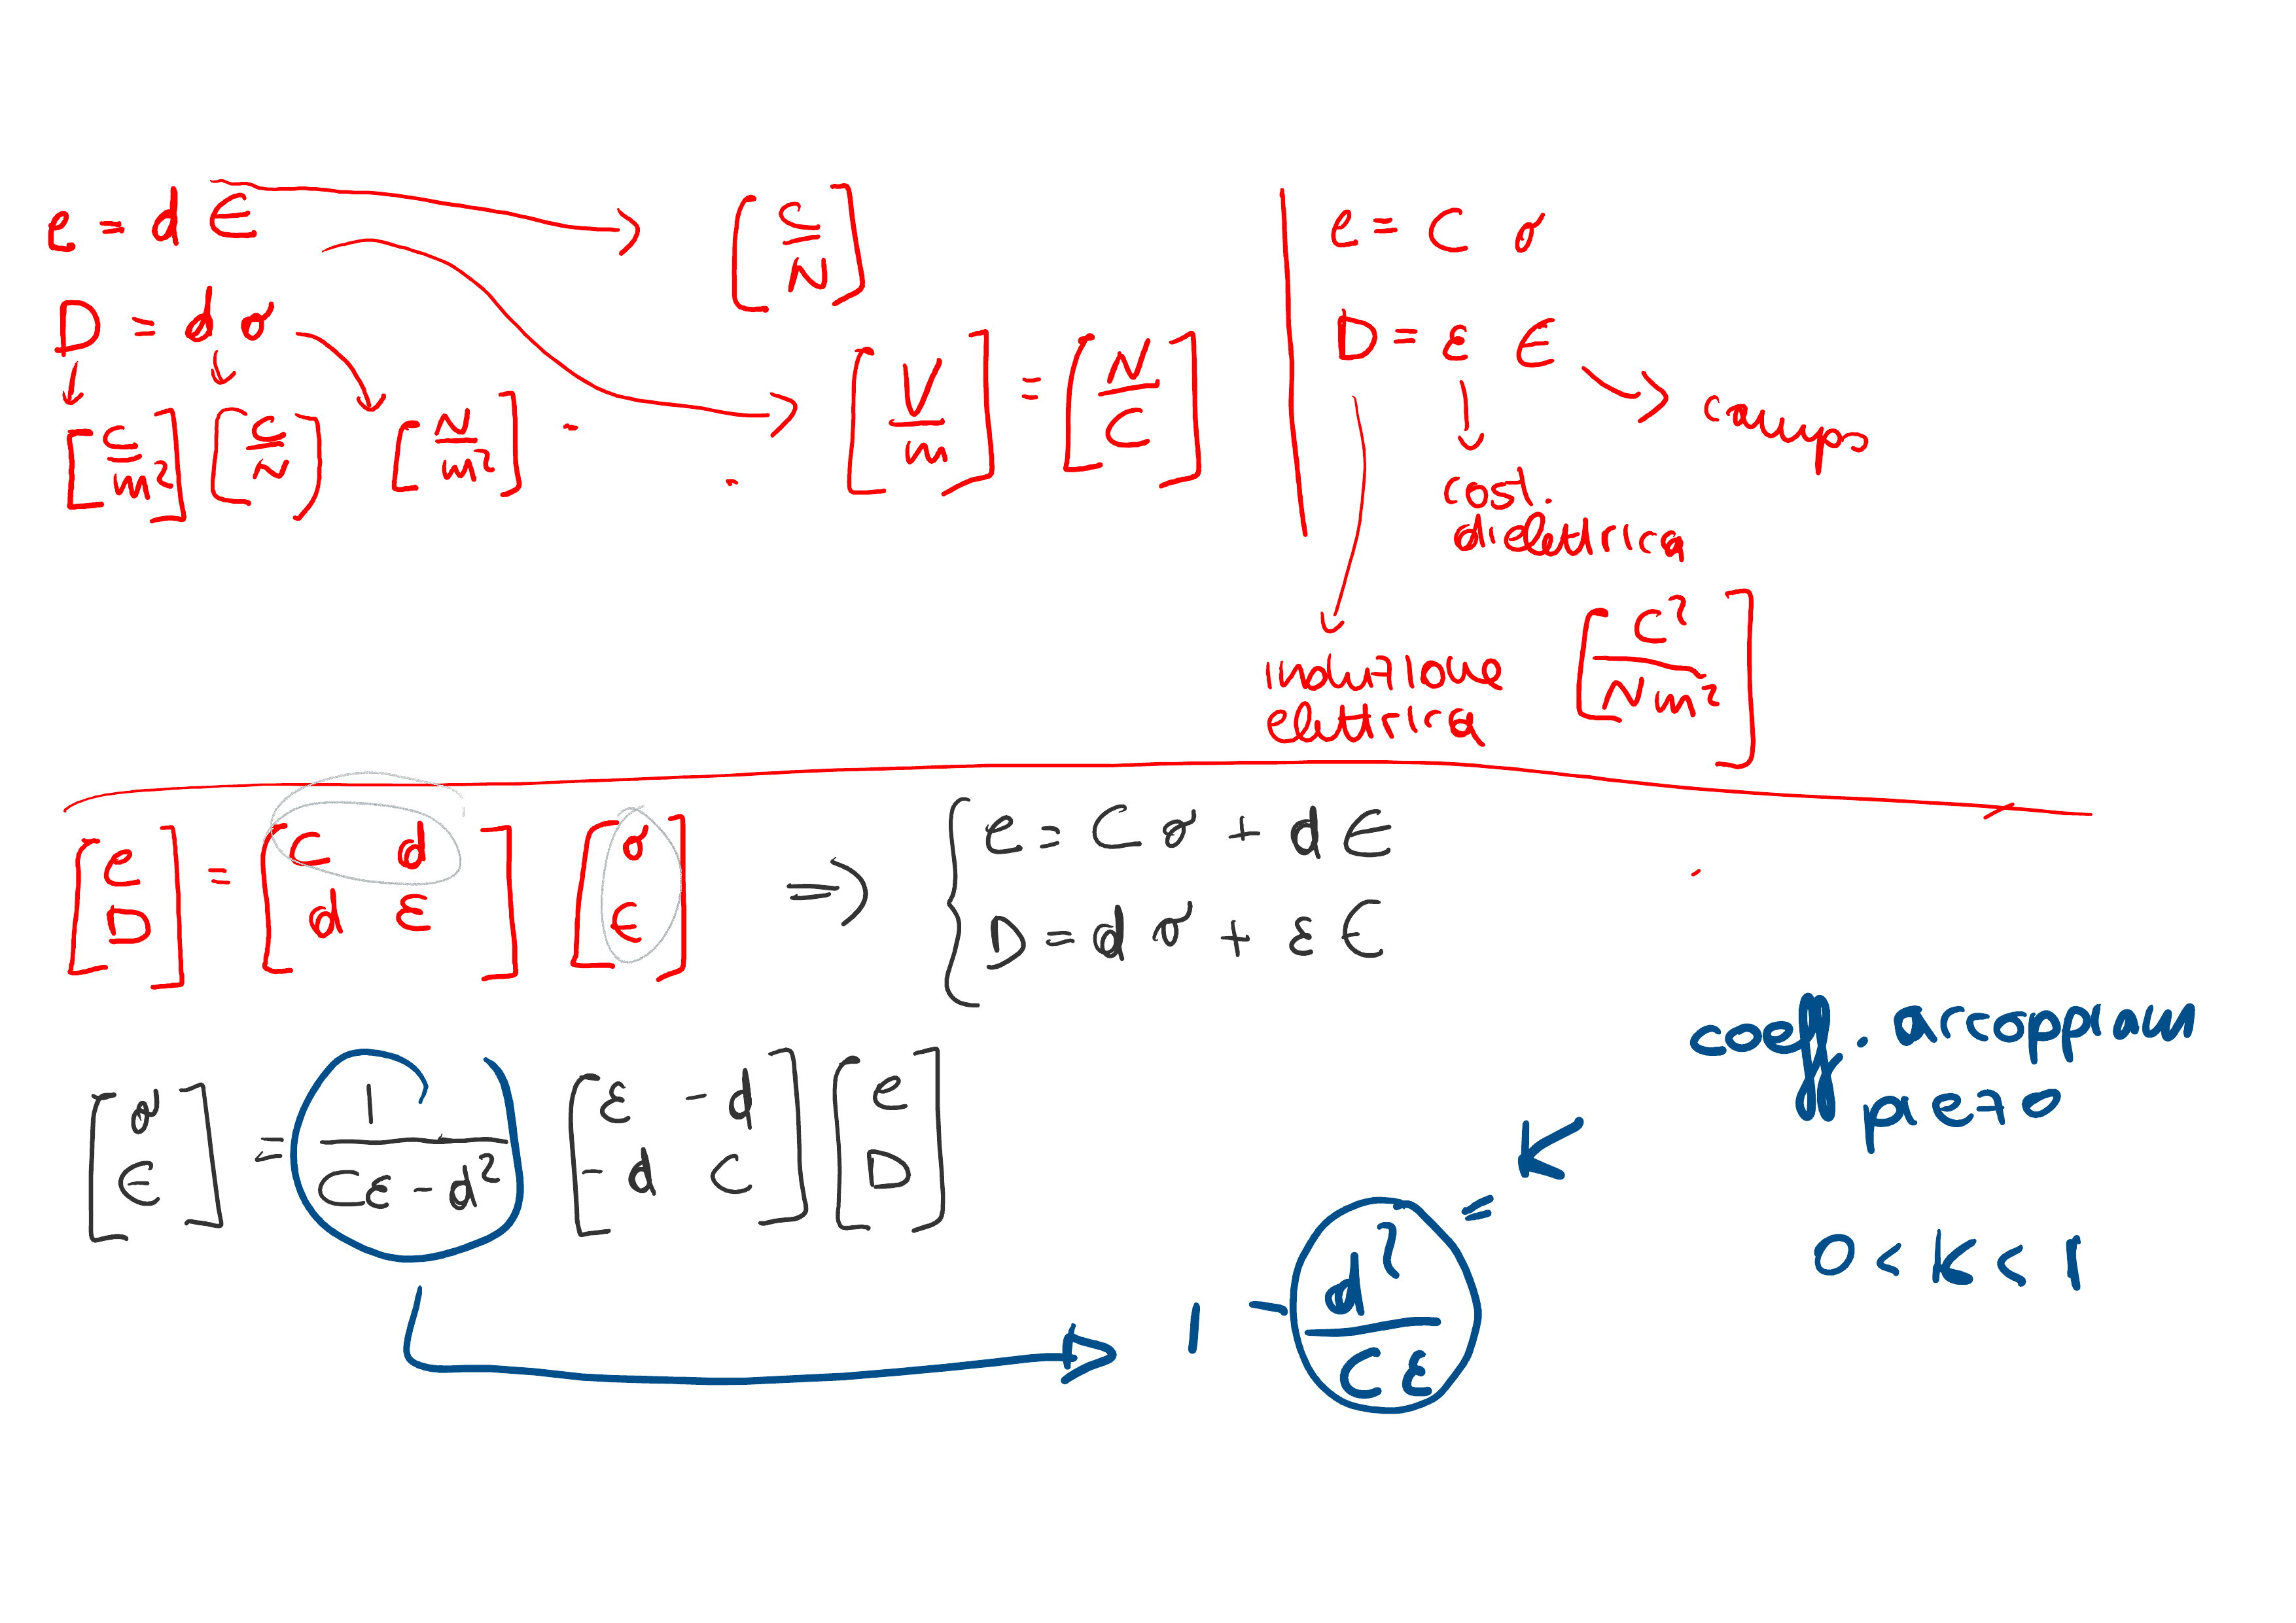 e = d E
[C/N]
D = d σ
[C/m²] [C/N] [N/m²]
[V/m] = [N/C]
e = C σ
D = ε E
campo
cost.
dielettrica
induzione
elettrica
[C²/Nm²]
[e D] = [C d d ε] [σ E] ⇒ { e = C σ + d E
D = d σ + ε E
[σ E] = 1/(Cε - d²) [ε -d -d C] [e D]
coeff. accoppiam
piezo
1 - d²/Cε = K
0 < K < 1